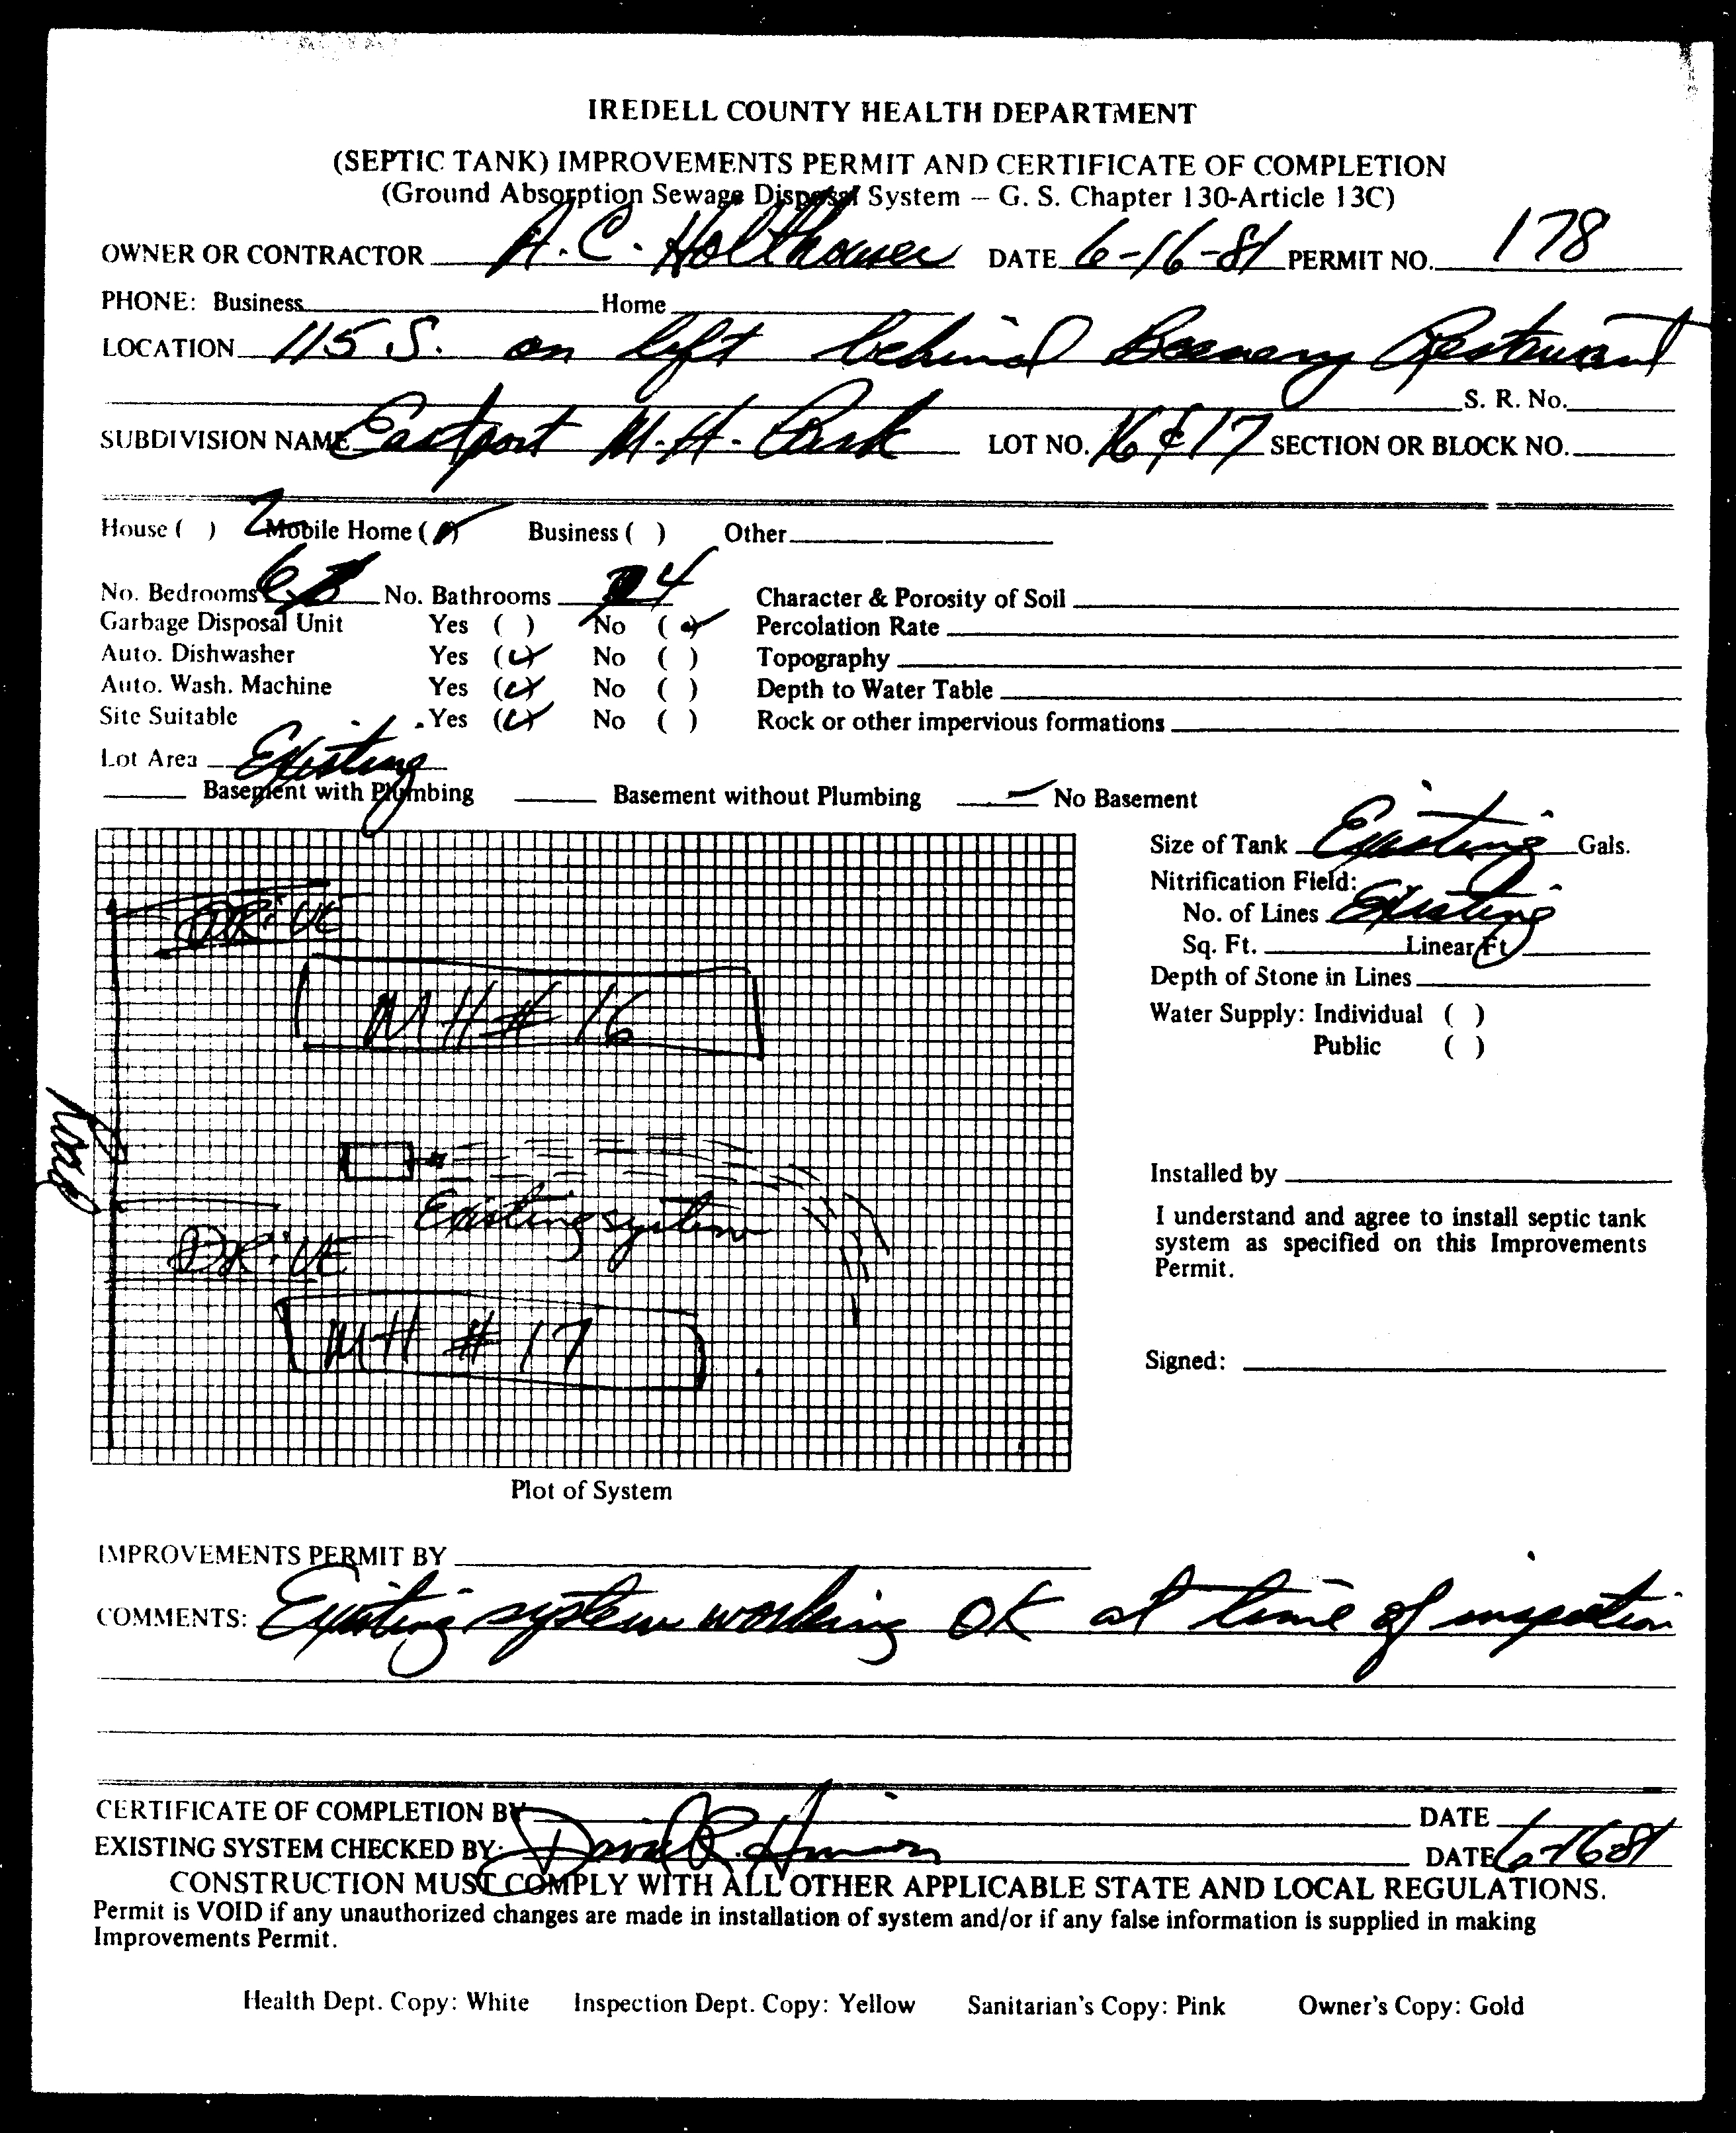 IREDELL COUNTY HEALTH DEPARTMENT
(SEPTIC TANK) IMPROVEMENTS PERMIT AND CERTIFICATE OF COMPLETION
(Ground Absorption Sewage Disposal System — G. S. Chapter 130-Article 13C)
OWNER OR CONTRACTOR A. C. Holthouser DATE 6-16-81 PERMIT NO. 178
PHONE: Business Home
LOCATION 115 S. on left behind Restaurant
S. R. No.
SUBDIVISION NAME Eastport M.H. Park LOT NO. 16 & 17 SECTION OR BLOCK NO.
House ( ) 2 Mobile Home (✓) Business ( ) Other
No. Bedrooms 6 No. Bathrooms 4 Character & Porosity of Soil
Garbage Disposal Unit Yes ( ) No (✓) Percolation Rate
Auto. Dishwasher Yes (✓) No ( ) Topography
Auto. Wash. Machine Yes (✓) No ( ) Depth to Water Table
Site Suitable Yes (✓) No ( ) Rock or other impervious formations
Lot Area Existing
Basement with Plumbing Basement without Plumbing ✓ No Basement
Size of Tank Existing Gals.
Nitrification Field:
No. of Lines Existing
Sq. Ft. Linear Ft
Depth of Stone in Lines
Water Supply: Individual ( )
Public ( )
DRIVE
MH # 16
Road
Existing system
DRIVE
MH # 17
Installed by
I understand and agree to install septic tank
system as specified on this Improvements
Permit.
Signed:
Plot of System
IMPROVEMENTS PERMIT BY
COMMENTS: Existing system working OK at time of inspection
CERTIFICATE OF COMPLETION BY DATE
EXISTING SYSTEM CHECKED BY: David R. DATE 6-16-81
CONSTRUCTION MUST COMPLY WITH ALL OTHER APPLICABLE STATE AND LOCAL REGULATIONS.
Permit is VOID if any unauthorized changes are made in installation of system and/or if any false information is supplied in making
Improvements Permit.
Health Dept. Copy: White Inspection Dept. Copy: Yellow Sanitarian's Copy: Pink Owner's Copy: Gold